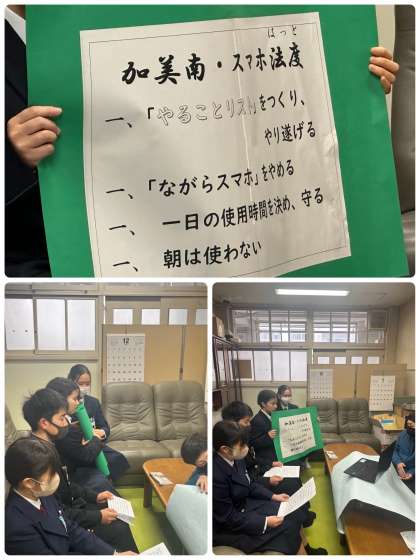 はっと
加美南・スマホ法度
一、「やることリスト」をつくり、
やり遂げる
一、「ながらスマホ」をやめる
一、 一日の使用時間を決め、守る
一、 朝は使わない
12
加美南・スマホ法度